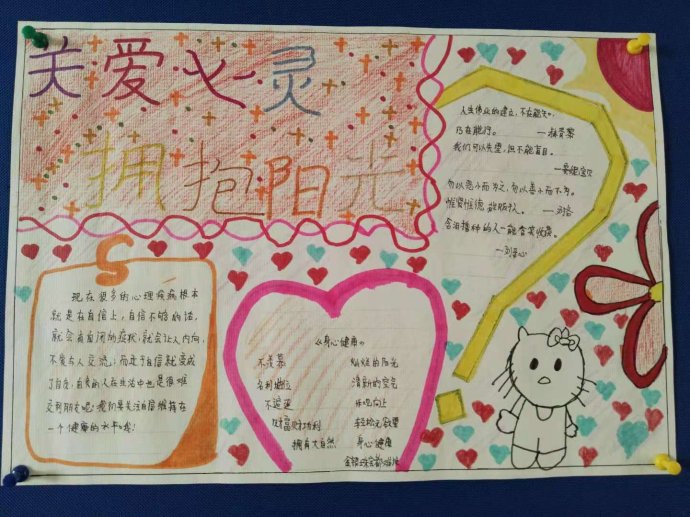 关爱心灵
拥抱阳光
人生伟业的建立,不在能知,
乃在能行。
我们可以失望,但不能盲目。
勿以恶小而为之,勿以善小而不为。
惟贤惟德,能服于人。 —刘备
含泪播种的人一能含笑收获。
现在很多的心理疾病根本
就是在自信上,自信不够的话,
就会有自闭的症状,就会让人内向,
不爱与人交流;而过于自信就变成
了自负,自负的人在生活中也是很难
交到朋友吧!我们要关注自信维持在
一个健康的水平线!
《身心健康》
不羡慕
名利地位
不追逐
财富财功利
拥有大自然
灿烂的阳光
清新的空气
乐观向上
轻松无欲望
身心健康